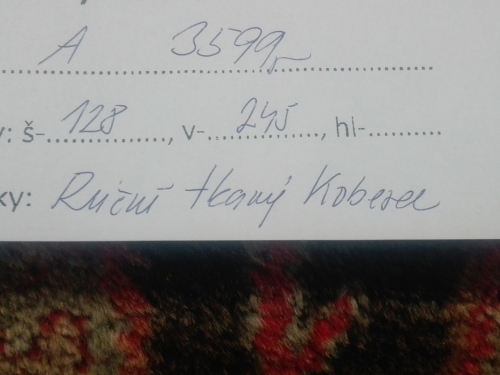 A 3599,-
y: š- 128, v- 245, hl-
ky: Ruční tkaný Koberec